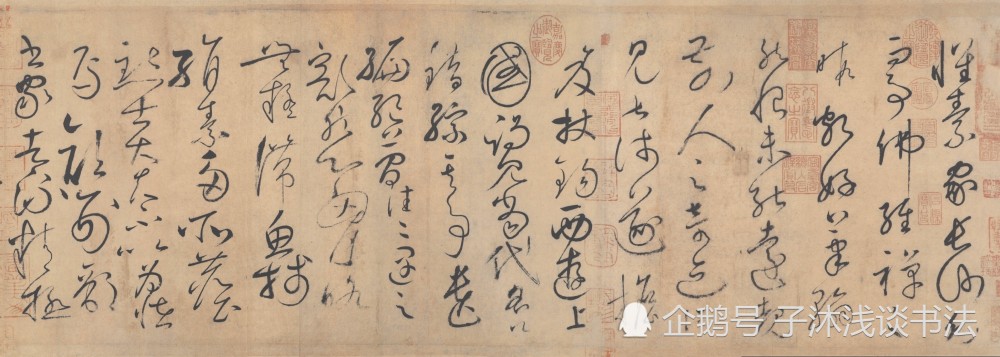 懷素家長沙幼
而事佛經禪之
暇頗好筆翰
然恨未能遠覩
前人之奇迹所
見甚淺遂擔
笈杖錫西遊上
國謁見當代名公
錯綜其事遺
編絕簡往往遇之
豁然心胸略
無疑滯魚牋
絹素多所塵
點士大夫不以為怪
焉顏刑部
書家者流精極
企鹅号 子沐浅谈书法